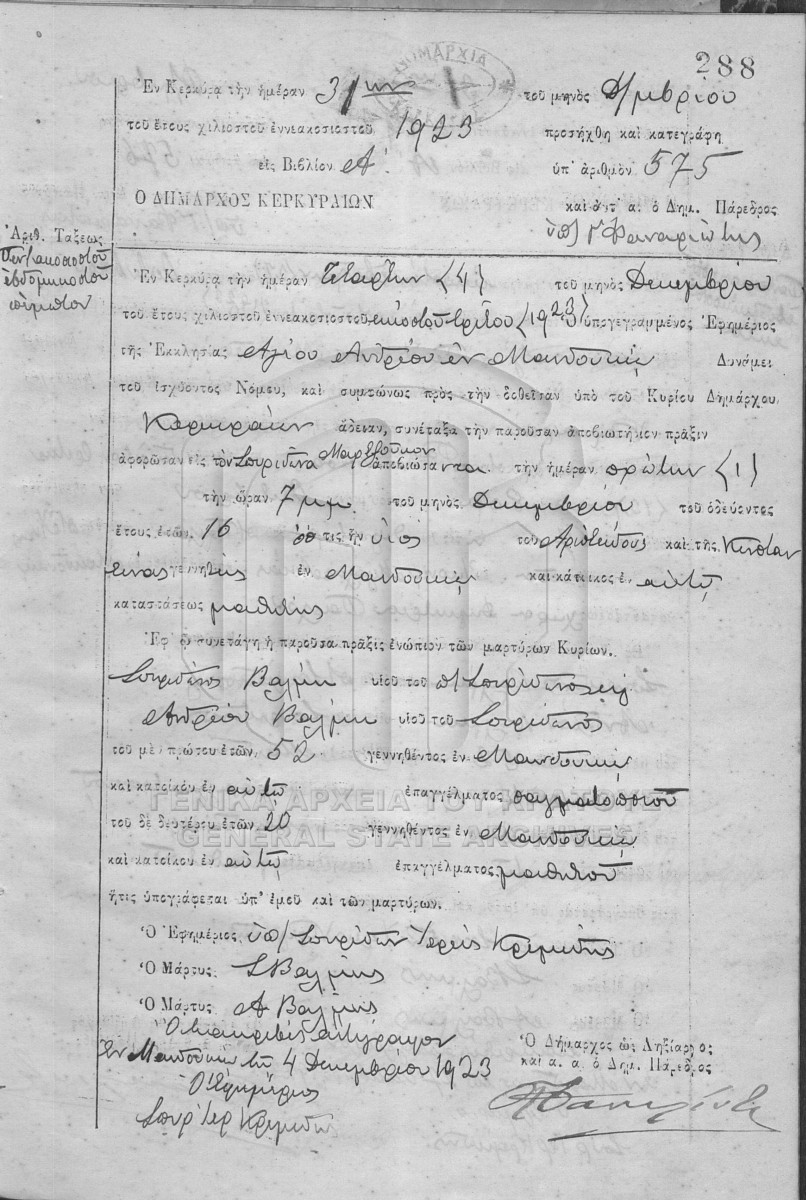 288
ΔΗΜΑΡΧΙΑ
Ἐν Κερκύρᾳ τὴν ἡμέραν 31ην τοῦ μηνὸς Δ/μβρίου
τοῦ ἔτους χιλιοστοῦ ἐννεακοσιοστοῦ 1923 προσήχθη καὶ κατεγράφη
εἰς Βιβλίον Α΄. ὑπ᾽ ἀριθμὸν 575
Ο ΔΗΜΑΡΧΟΣ ΚΕΡΚΥΡΑΙΩΝ καὶ ἀντ᾽ α. ὁ Δημ. Πάρεδρος
ὑπ/ Γ Φαναριώτης
Ἀριθ. Τάξεως
Πεντακοσιοστοῦ
ἑβδομηκοστοῦ
πέμπτου
Ἐν Κερκύρᾳ τὴν ἡμέραν Τετάρτην (4) τοῦ μηνὸς Δεκεμβρίου
τοῦ ἔτους χιλιοστοῦ ἐννεακοσιοστοῦ εἰκοστοῦ τρίτου (1923) ὑπογεγραμμένος Ἐφημέριος
τῆς Ἐκκλησίας Ἁγίου Ἀνδρέου ἐν Μανδουκίῳ Δυνάμει
τοῦ ἰσχύοντος Νόμου, καὶ συμφώνως πρὸς τὴν δοθεῖσαν ὑπὸ τοῦ Κυρίου Δημάρχου,
Κερκυραίων ἄδειαν, συνέταξα τὴν παροῦσαν ἀποβιωτήριον πρᾶξιν
ἀφορῶσαν εἰς τὸν Σπυρίδωνα ἀποβιώσαντα τὴν ἡμέραν πρώτην (1)
τὴν ὥραν 7 μ.μ. τοῦ μηνὸς Δεκεμβρίου τοῦ ὁδεύοντος
ἔτους ἐτῶν 16 ὅστις ἦν υἱὸς τοῦ Ἀριστείδους καὶ τῆς
γεννηθεὶς ἐν Μανδουκίῳ καὶ κάτοικος ἐν αὐτῷ
καταστάσεως μαθητής
Ἐφ᾽ ᾧ συνετάγη ἡ παροῦσα πρᾶξις ἐνώπιον τῶν μαρτύρων Κυρίων.
Σπυρίδωνος Βαλμη υἱοῦ τοῦ π/
Ἀνδρέου Βαλμη υἱοῦ τοῦ Σπυρίδωνος
τοῦ μὲν πρώτου ἐτῶν 52 γεννηθέντος ἐν Μανδουκίῳ
καὶ κατοίκου ἐν αὐτῷ ἐπαγγέλματος σαγματοποιοῦ
ΓΕΝΙΚΑ ΑΡΧΕΙΑ ΤΟΥ ΚΡΑΤΟΥΣ
τοῦ δὲ δευτέρου ἐτῶν 20 γεννηθέντος ἐν Μανδουκίῳ
GENERAL STATE ARCHIVES
καὶ κατοίκου ἐν αὐτῷ ἐπαγγέλματος μαθητοῦ
ἥτις ὑπογράφεται ὑπ᾽ ἐμοῦ καὶ τῶν μαρτύρων.
Ὁ Ἐφημέριος ὑπ/ Σπυρίδων Ἱερεὺς Κρεμύδης
Ὁ Μάρτυς Σ Βαλμης
Ὁ Μάρτυς Α Βαλμης
Ὅτι ἀκριβὲς ἀντίγραφον
Ἐν Μανδουκίῳ τῇ 4 Δεκεμβρίου 1923
Ὁ Ἐφημέριος
Σπυρ Ἱερ Κρεμύδης
Ὁ Δήμαρχος ὡς Ληξίαρχος
καὶ α. α. ὁ Δημ. Πάρεδρος